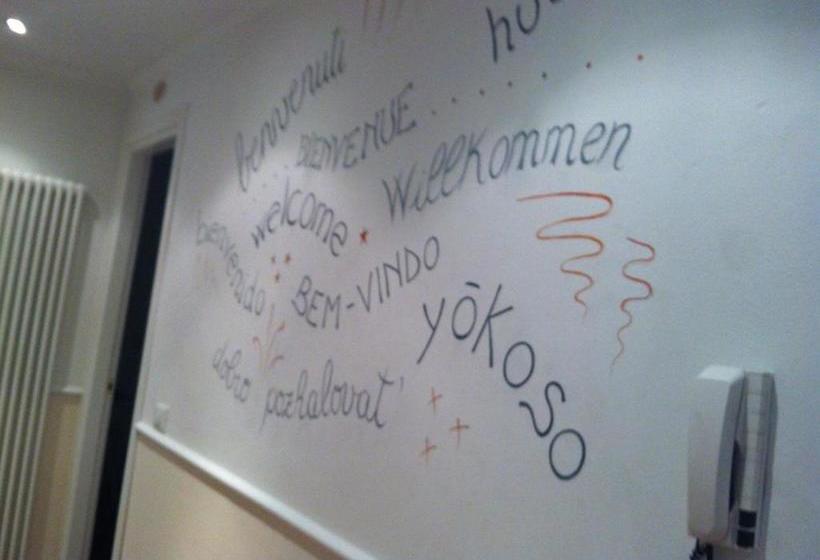 benvenuti
BIENVENUE
Willkommen
welcome
bienvenido
BEM-VINDO
YŌKOSO
dobro pozhalovat'